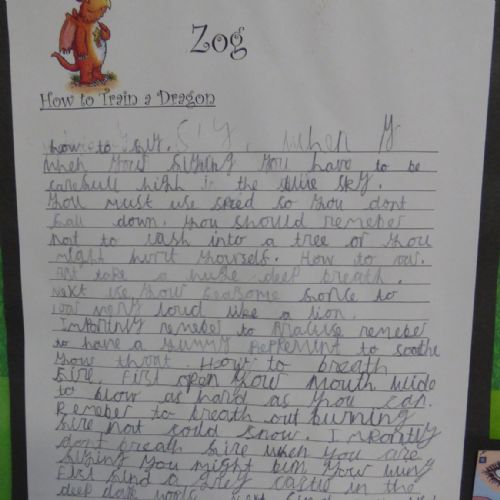 Zog
How to Train a Dragon
how to fly. when y
When your flying you have to be
carefull high in the blue sky.
You must use speed so you dont
fall down. You should remeber
not to crash into a tree or you
might hurt yourself. How to roar.
take a huge deep breath.
Next use your to
roar very loud like a lion.
remeber to remeber
to have a yummy to soothe
your throat. How to breath
fire. First open your mouth wide
to blow as hard as you can.
Remeber to breath out burning
fire not cold snow.
dont breath fire when you are
fliying you might your wing
First find a castle in the
deep dark